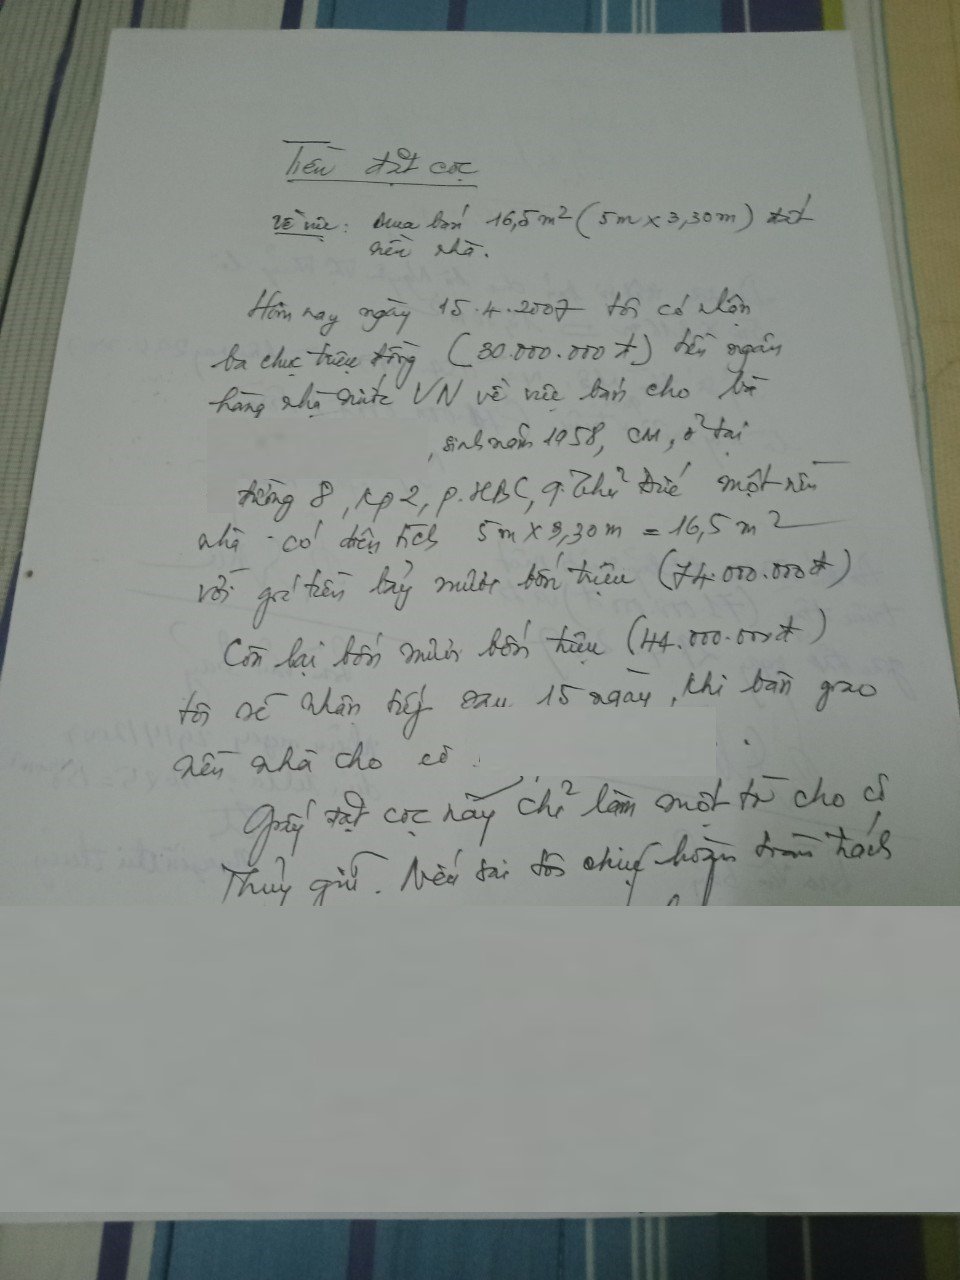 Tiền đặt cọc
Về việc: Mua bán 16,5m² (5m x 3,30m) đất
nền nhà.
Hôm nay ngày 15.4.2007 tôi có nhận
ba chục triệu đồng (30.000.000đ) tiền ngân
hàng nhà nước VN về việc bán cho bà
, sinh năm 1958, CM, ở tại
đường 8, kp2, p.HBC, q. Thủ Đức một nền
nhà có diện tích 5m x 3,30m = 16,5m²
với giá tiền bảy mươi bốn triệu (74.000.000đ)
Còn lại bốn mươi bốn triệu (44.000.000đ)
tôi sẽ nhận tiếp sau 15 ngày, khi bàn giao
nền nhà cho cô
Giấy đặt cọc này chỉ làm một tờ cho cô
Thủy giữ. Nếu sai tôi chịu hoàn toàn trách